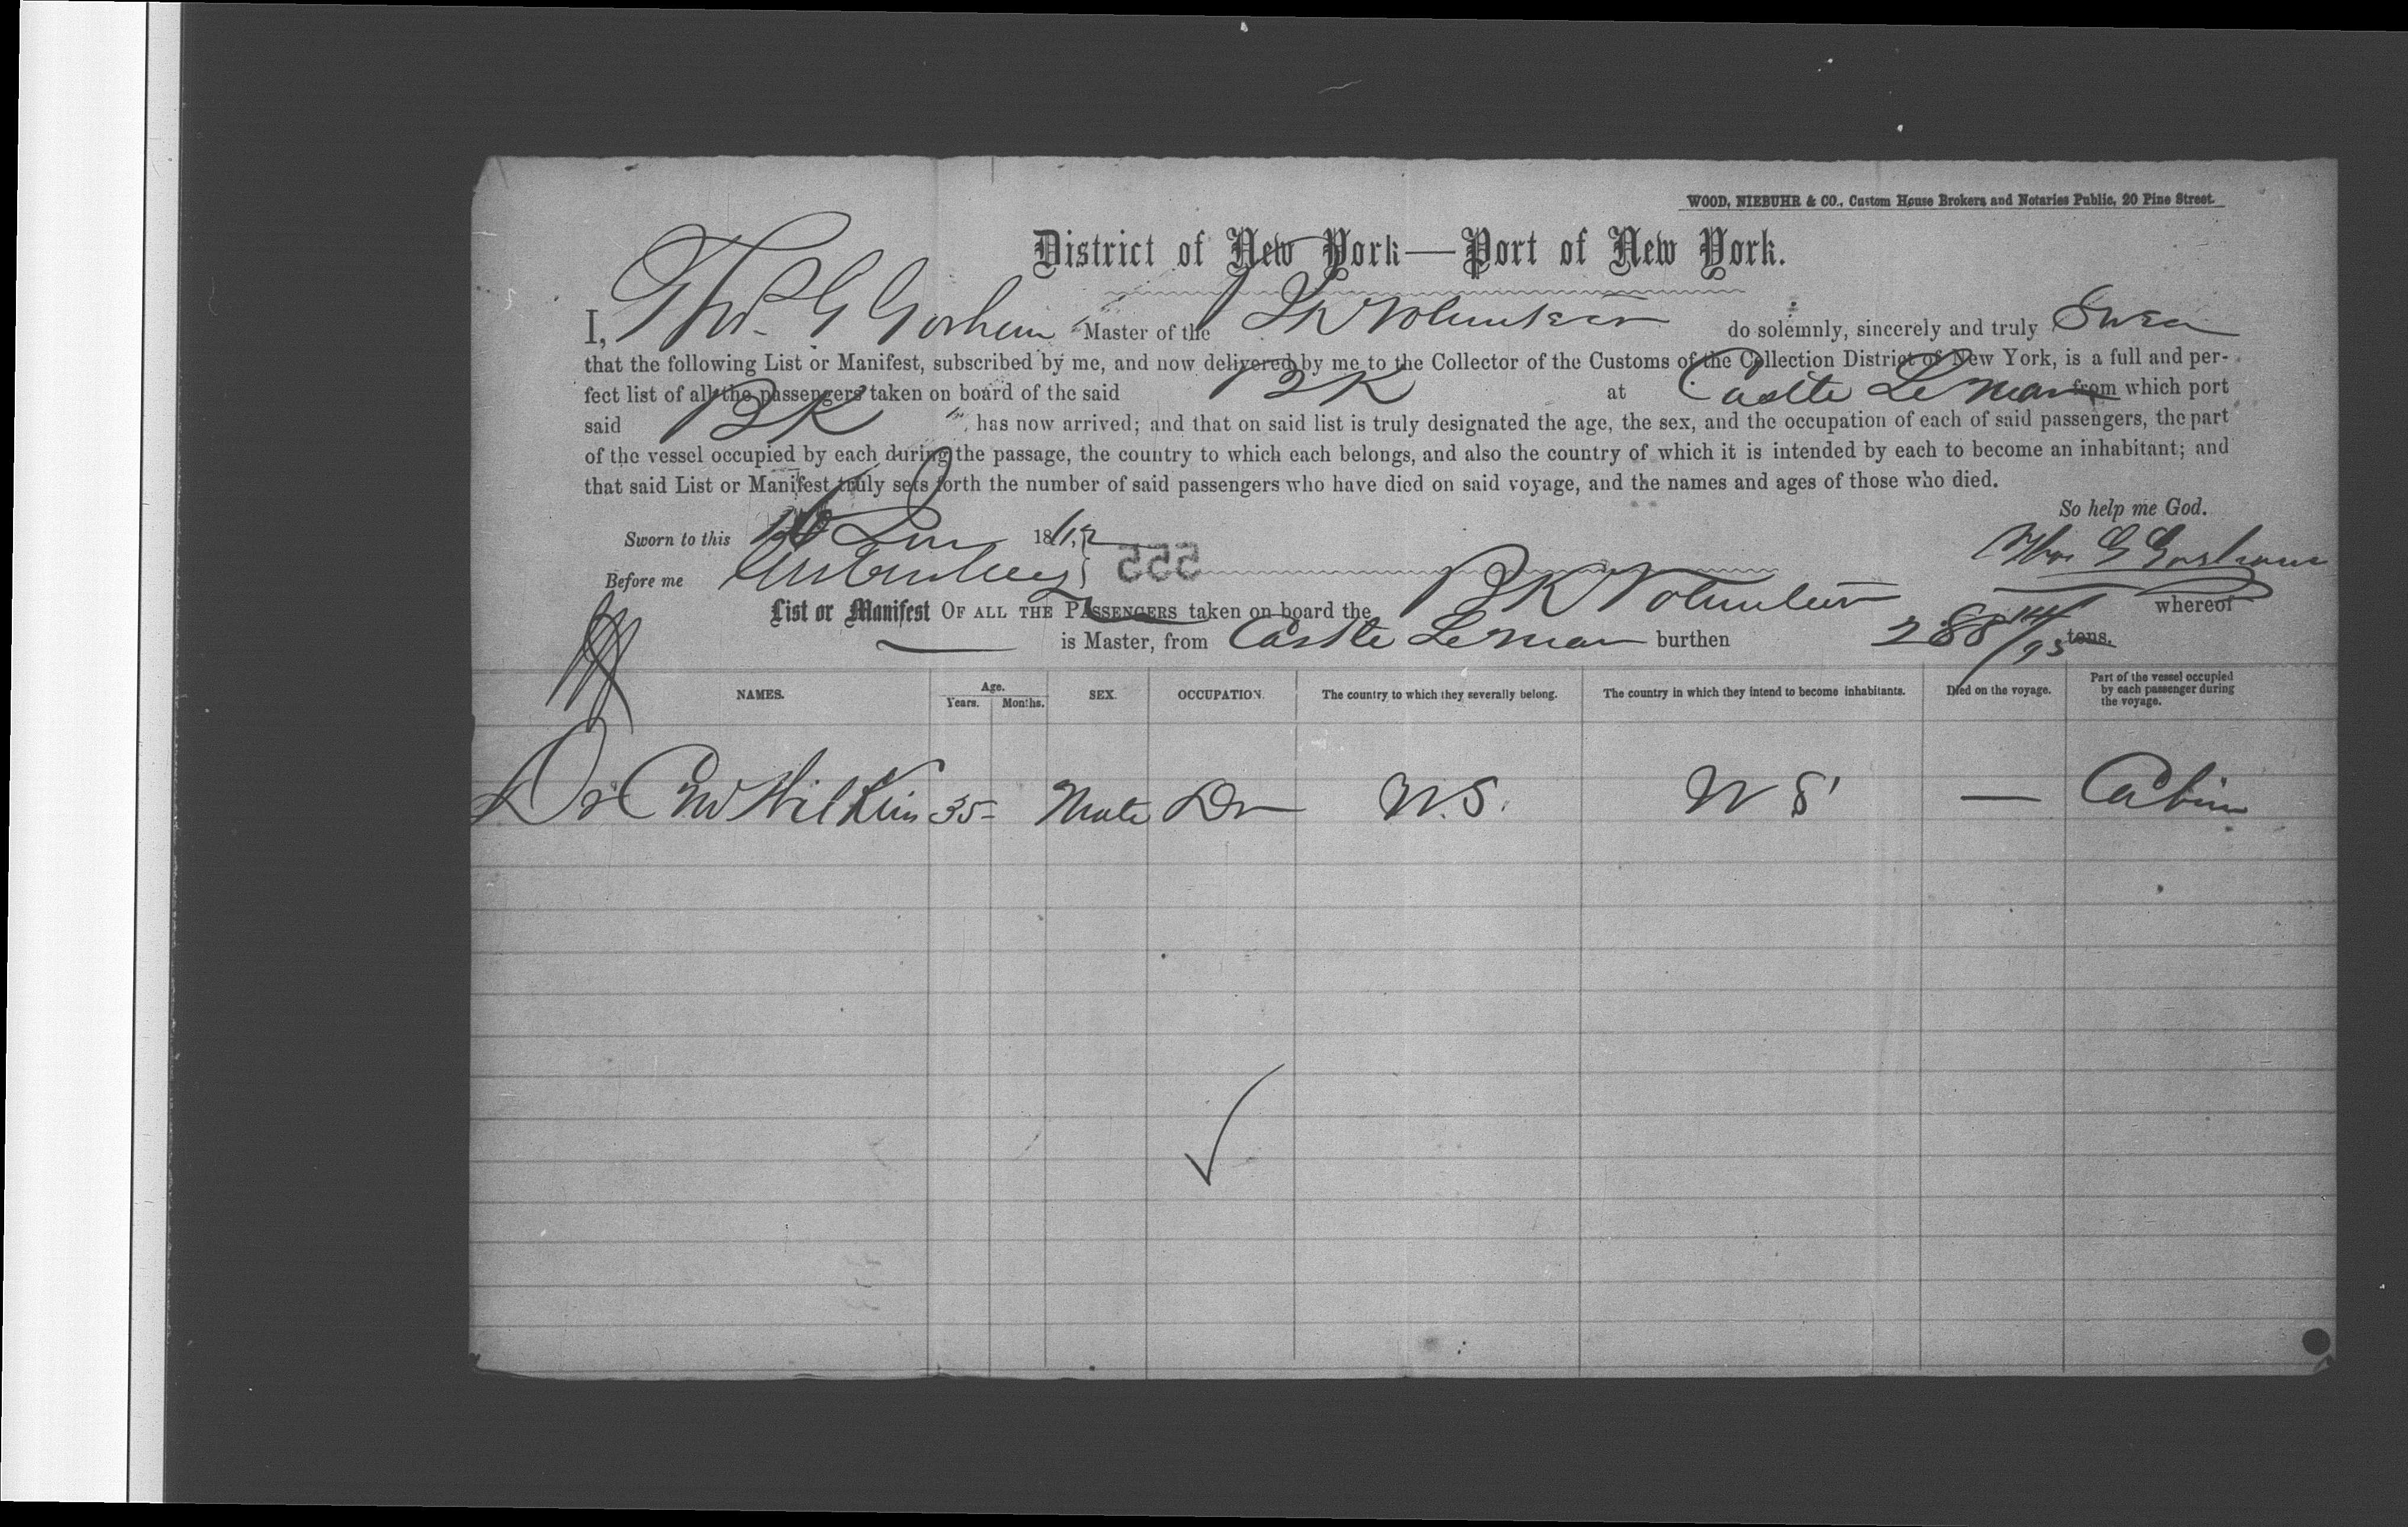 WOOD, NIEBUHR & CO., Custom House Brokers and Notaries Public, 20 Pine Street.
District of New York—Port of New York.
I, Thos G Gorham Master of the BK Volunteer do solemnly, sincerely and truly Swear
that the following List or Manifest, subscribed by me, and now delivered by me to the Collector of the Customs of the Collection District of New York, is a full and per-
fect list of all the passengers taken on board of the said BK at Castle from which port
said BK has now arrived; and that on said list is truly designated the age, the sex, and the occupation of each of said passengers, the part
of the vessel occupied by each during the passage, the country to which each belongs, and also the country of which it is intended by each to become an inhabitant; and
that said List or Manifest truly sets forth the number of said passengers who have died on said voyage, and the names and ages of those who died.
So help me God.
Sworn to this 18
Thos G Gorham
Before me
555
List or Manifest OF ALL THE PASSENGERS taken on board the BK Volunteer whereof
is Master, from Castle burthen 288 /95 tons.
NAMES. Age. Years. Months. SEX. OCCUPATION. The country to which they severally belong. The country in which they intend to become inhabitants. Died on the voyage. Part of the vessel occupied by each passenger during the voyage.
Dr Wilkin 35 Male Dr U.S. U S — Cabin